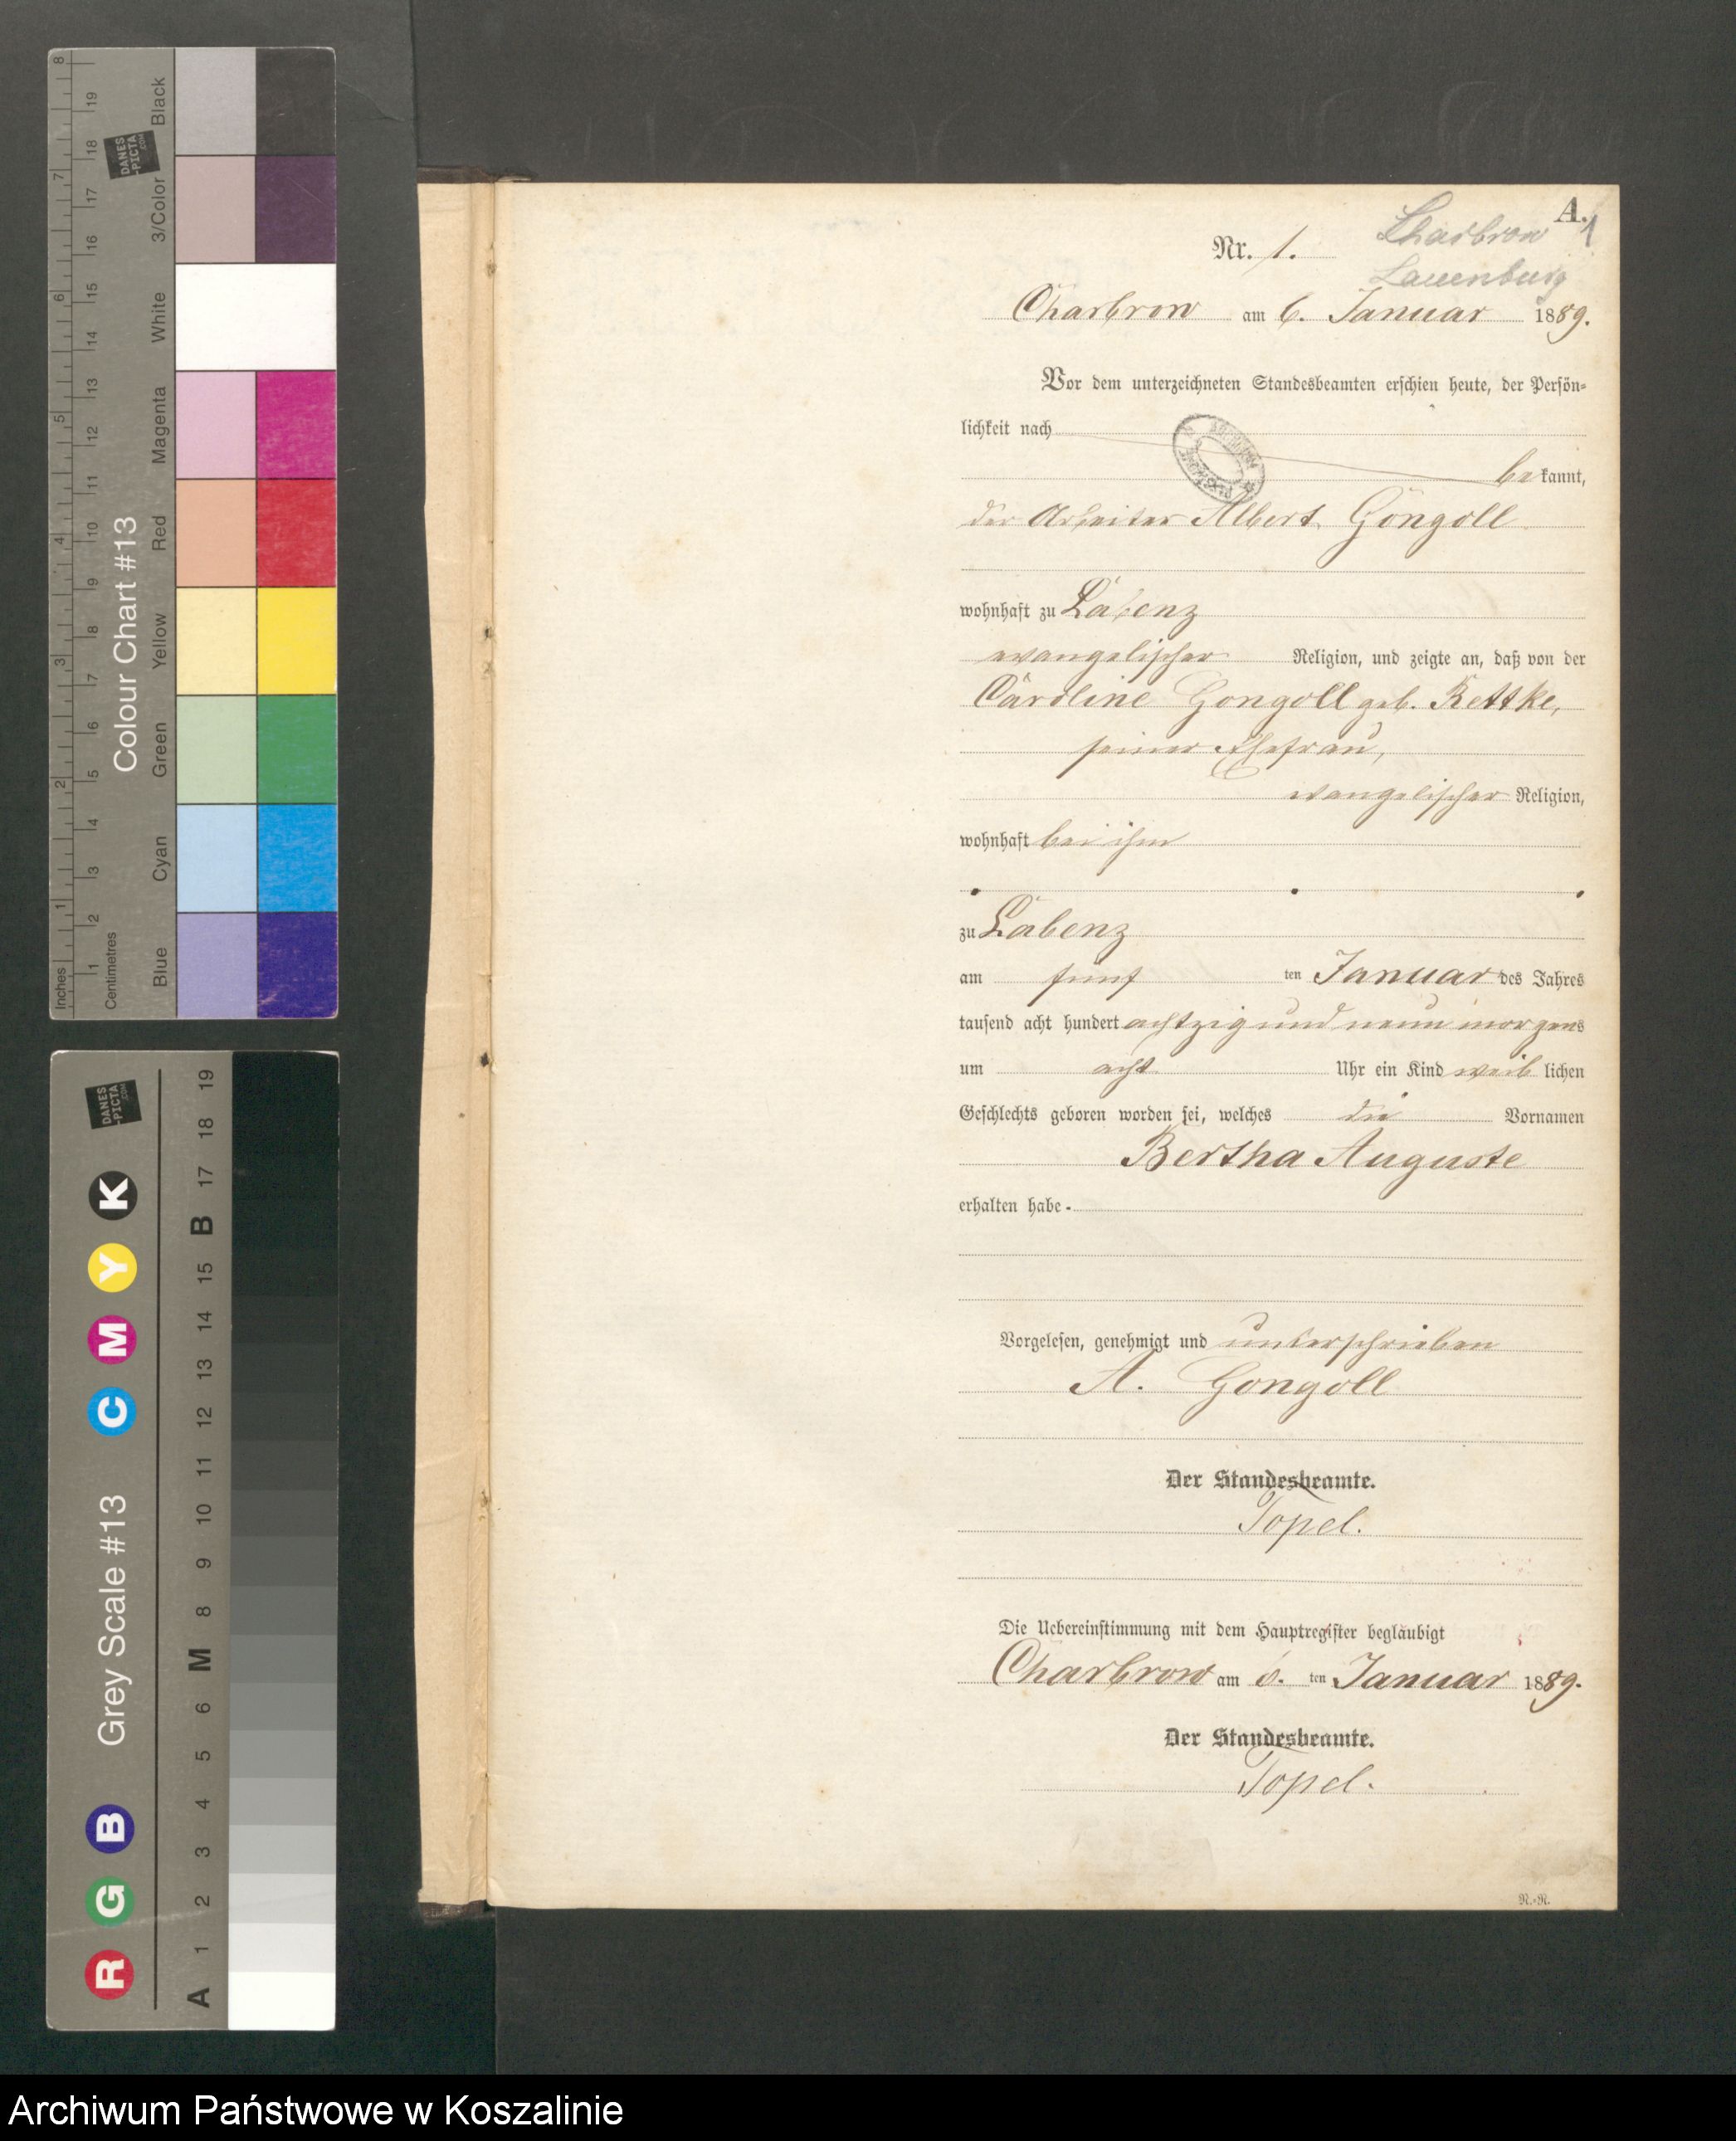 8
19
18
7
17
16
6
15
14
13
5
12
11
4
10
9
3
8
7
2
6
5
4
1
3
2
1
Inches
Centimetres
Colour Chart #13
Black
3/Color
White
Magenta
Red
Yellow
Green
Cyan
Blue
DANES
-PICTA
.COM
DANES
-PICTA
.COM
R G B Grey Scale #13 C M Y K
A 1 2 3 4 5 6 M 8 9 10 11 12 13 14 15 B 17 18 19
A.
1
Charbrow
Lauenburg
Nr. 1.
Charbrow am 6. Januar 1889.
Vor dem unterzeichneten Standesbeamten erschien heute, der Persön-
lichkeit nach
bekannt,
der Arbeiter Albert Gongoll
wohnhaft zu Labenz
evangelischer Religion, und zeigte an, daß von der
Caroline Gongoll geb. Rettke,
seiner Ehefrau,
evangelischer Religion,
wohnhaft bei ihm
zu Labenz
am fünf ten Januar des Jahres
tausend acht hundert achtzig und neun morgens
um acht Uhr ein Kind weiblichen
Geschlechts geboren worden sei, welches die Vornamen
Bertha Auguste
erhalten habe.
Vorgelesen, genehmigt und unterschrieben
A. Gongoll
Der Standesbeamte.
Topel.
Die Uebereinstimmung mit dem Hauptregister beglaubigt
Charbrow am 6. ten Januar 1889.
Der Standesbeamte.
Topel.
N.-R.
Archiwum Państwowe w Koszalinie